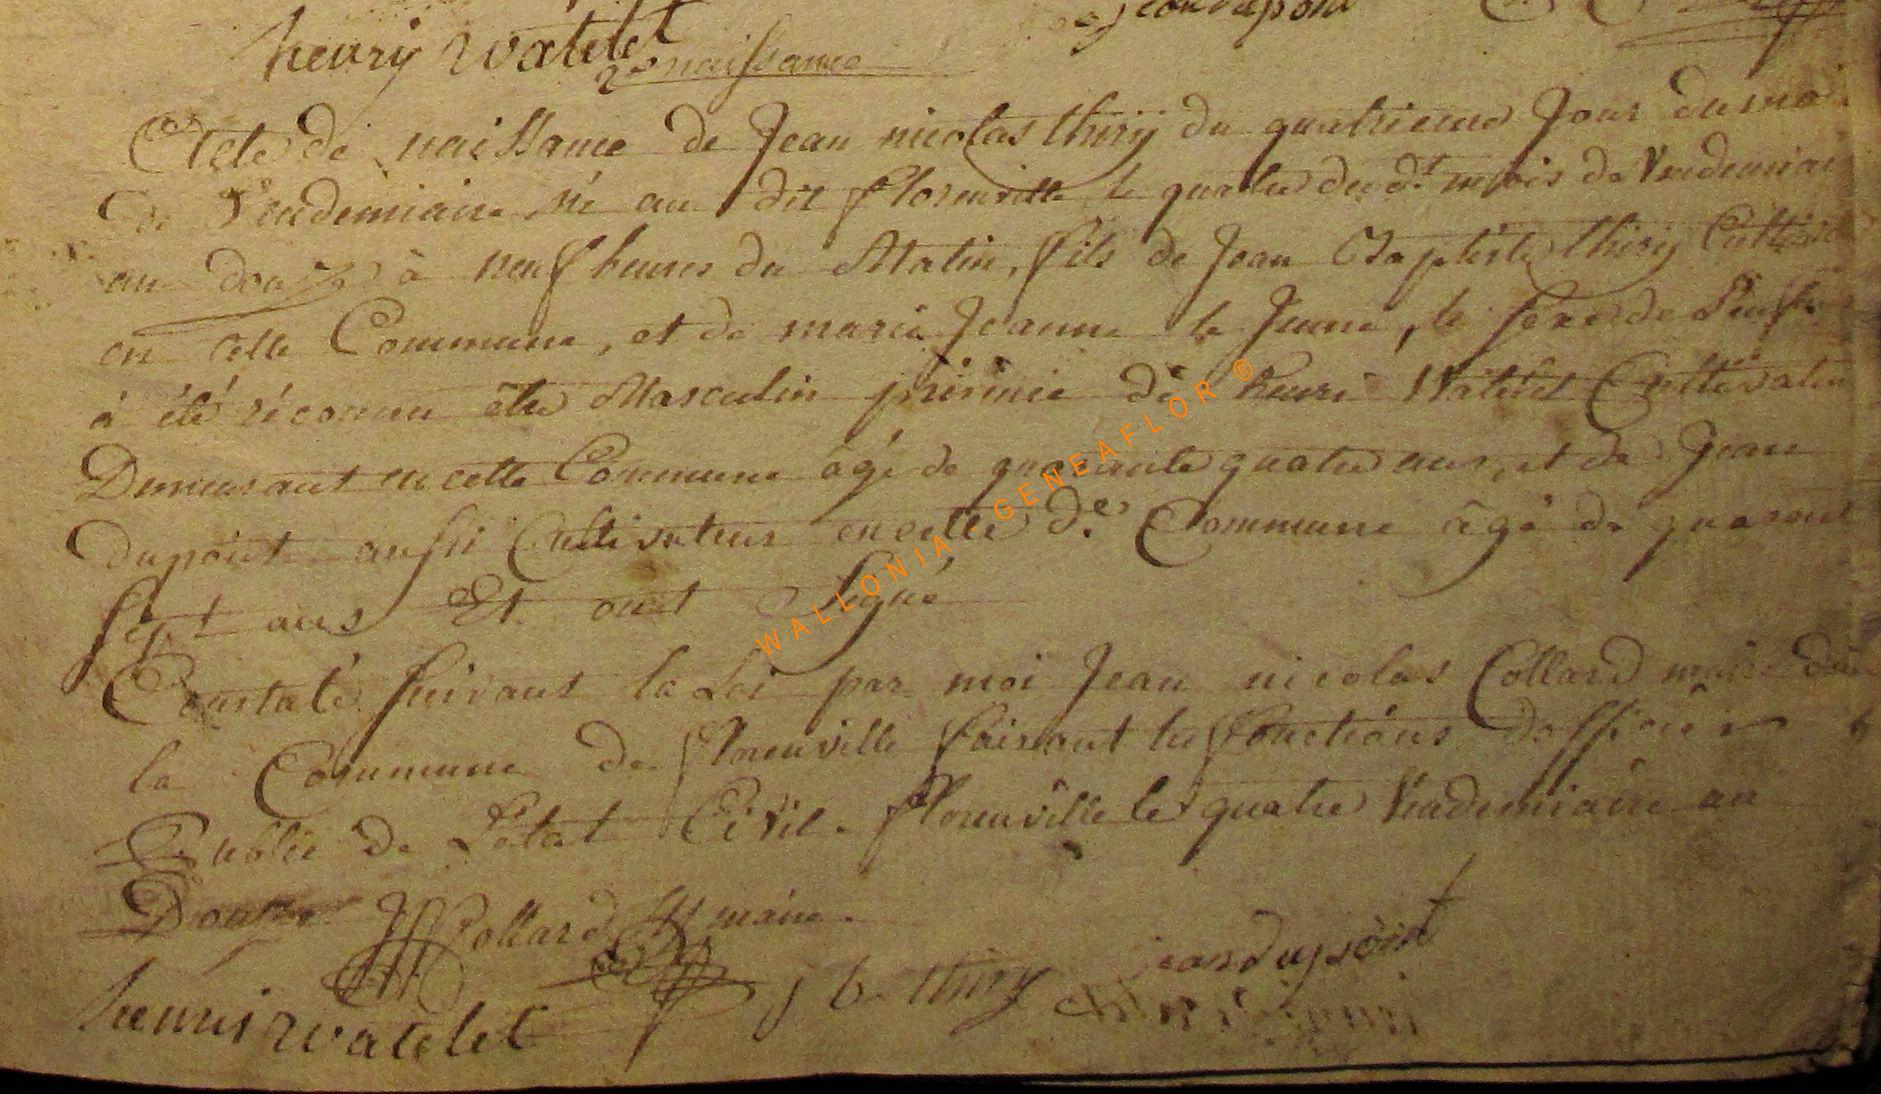 jean dupoint
henry watelet
2e naissance
Acte de naissance de Jean nicolas thiry du quatrieme Jour du moi
de Vendemiaire né au dit florenville le quatre du dt mois de Vendemiai
an douze à neuf heures du Matin, fils de Jean Baptiste thiry Cultiva
en cette Commune, et de marie Jeanne le Jeune, le sexe de L'enfan
à été réconnu être Masculin prémie de henri Watelet Cultivateu
Demeurant en cette Commune âgé de quarante quatre ans, et de Jean
dupoint aussi Cultivateur en cette de. Commune âgé de quarant
sept ans Et ont Signé
Constaté suivant la Loi par moi Jean nicolas Collard maire de
la Commune de florenville faisant les fonctions d'officier
Public de L'état Civil. florenville le quatre Vendemiaire an
Douze JN Collard maire.
henri watelet j b thiry jean dupoint
WALLONIA - GENEAFLOR ®